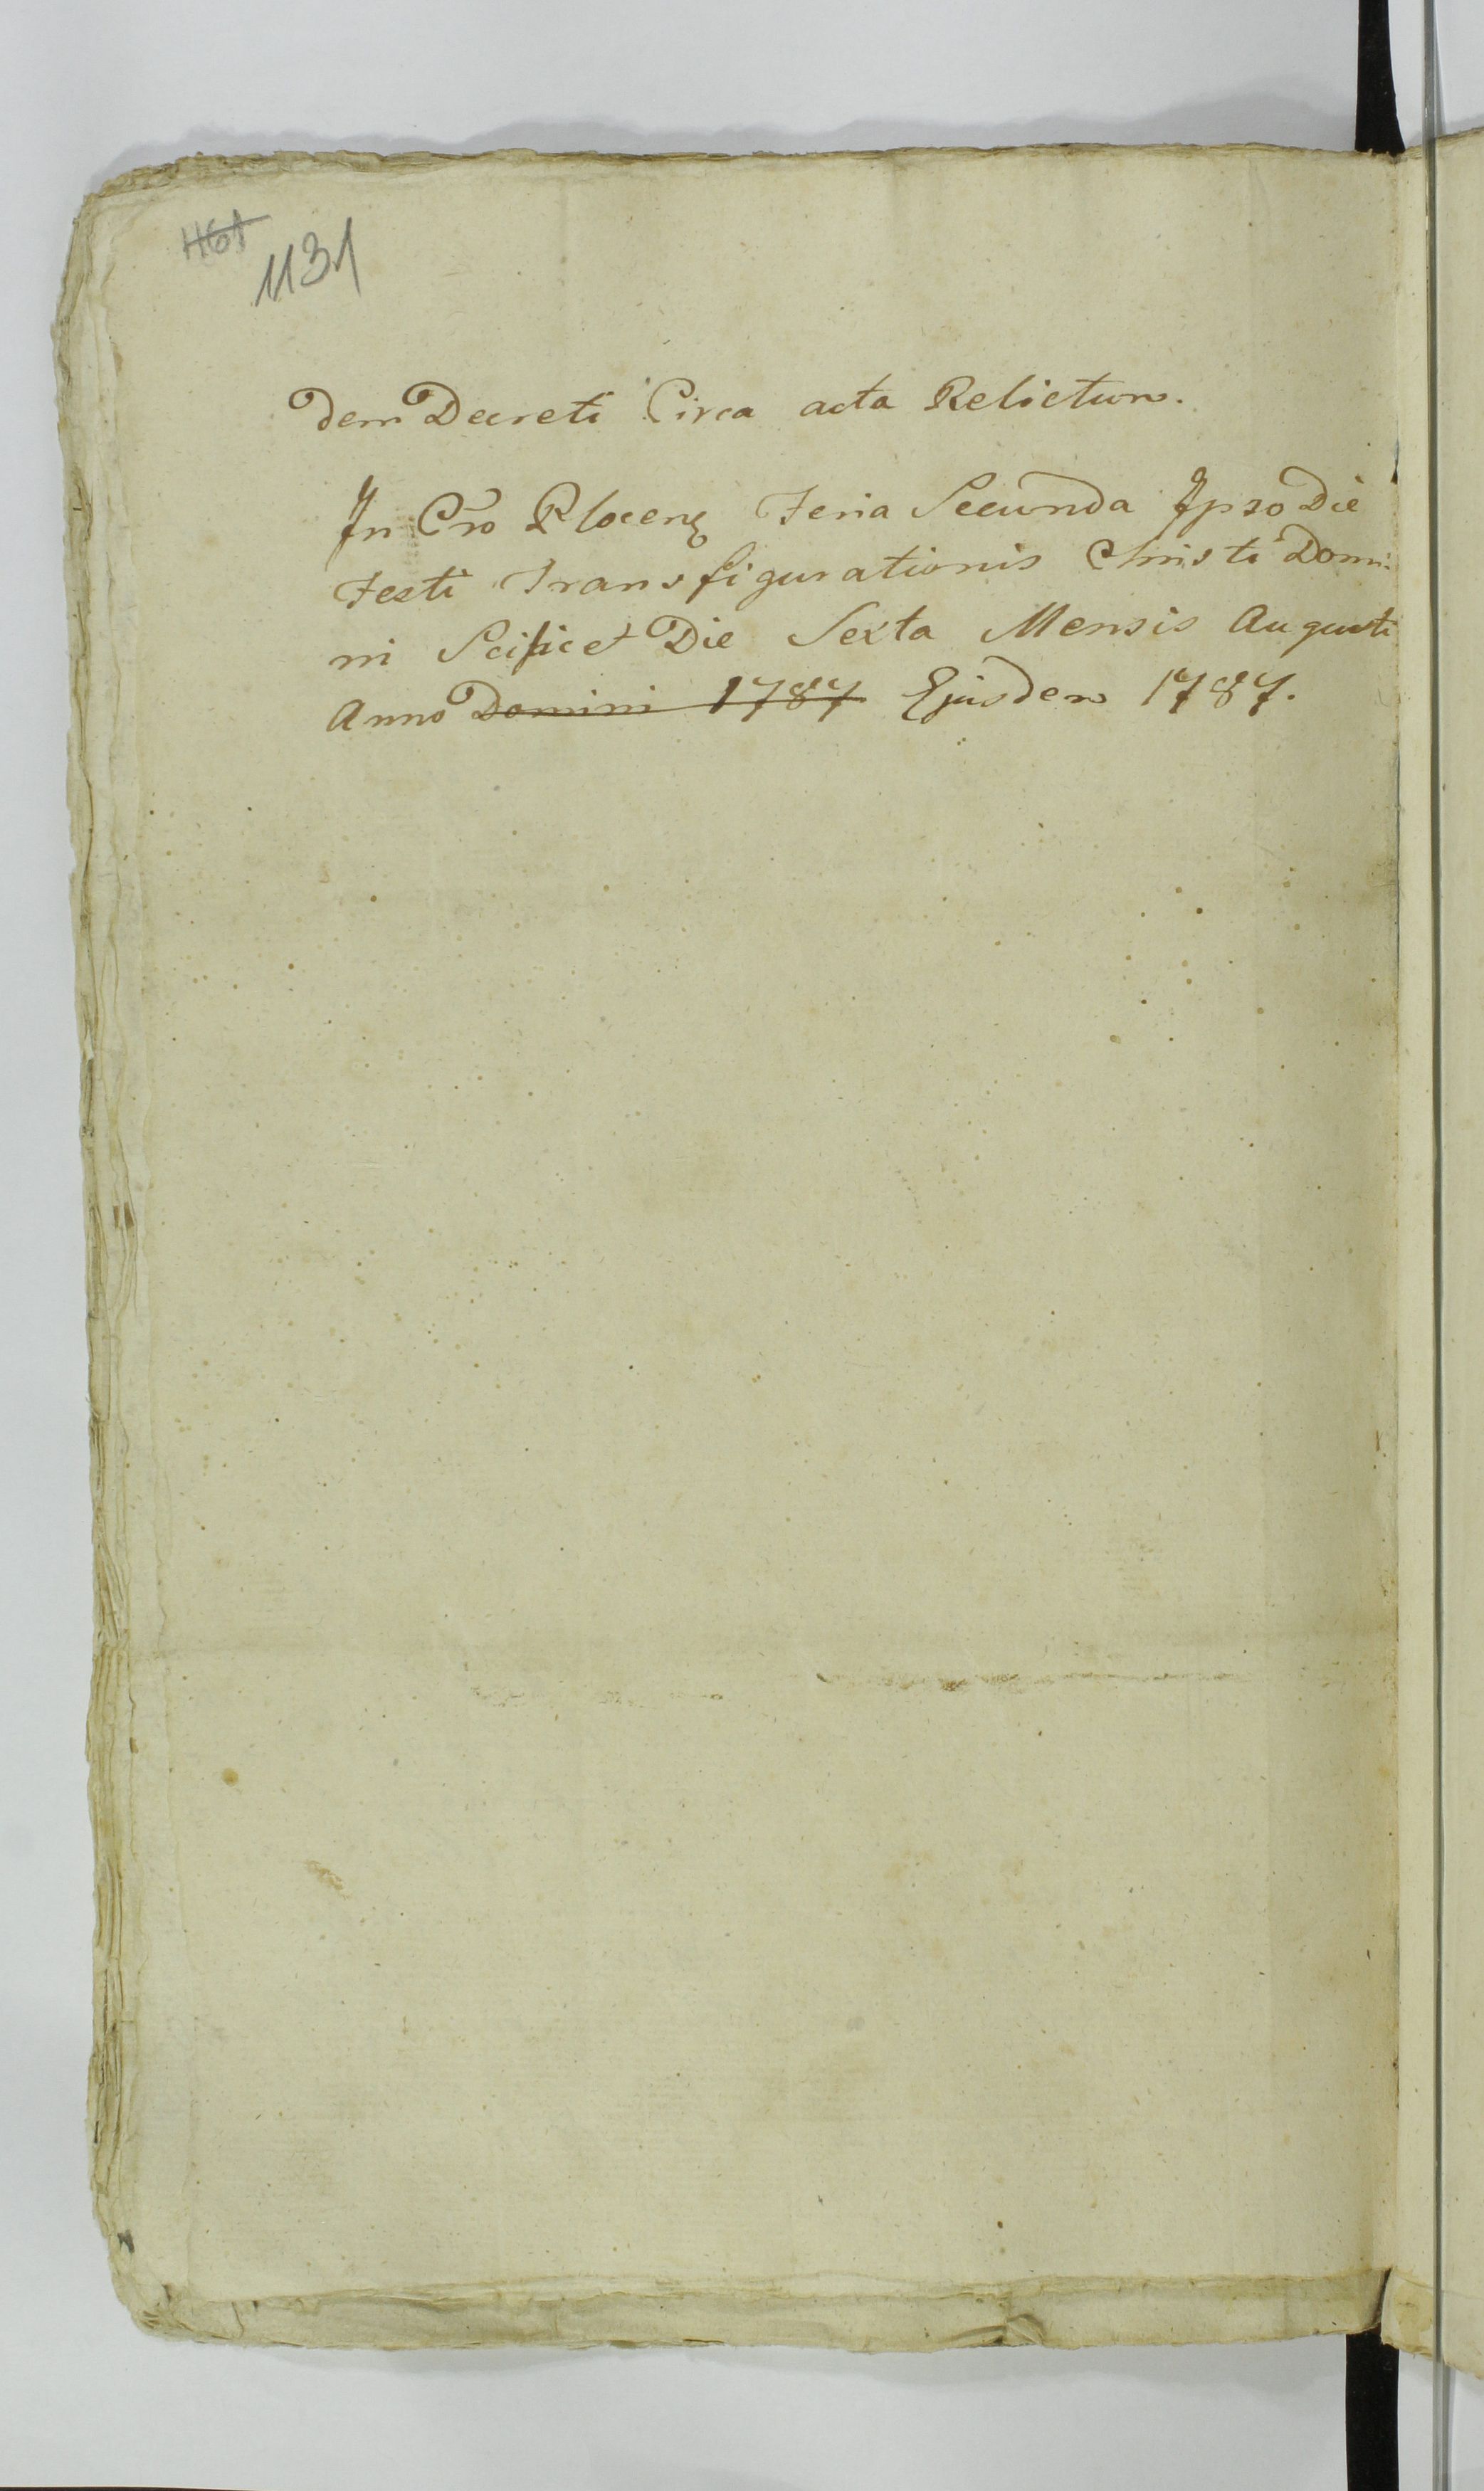 1161
1131
dem Decreti Circa acta Relictum.
In Cro Plocen Feria Secunda Ipso Die
Festi Transfigurationis Christi Domi-
ni Scilicet Die Sexta Mensis Augusti
Anno Domini 1787 Ejusdem 1787.